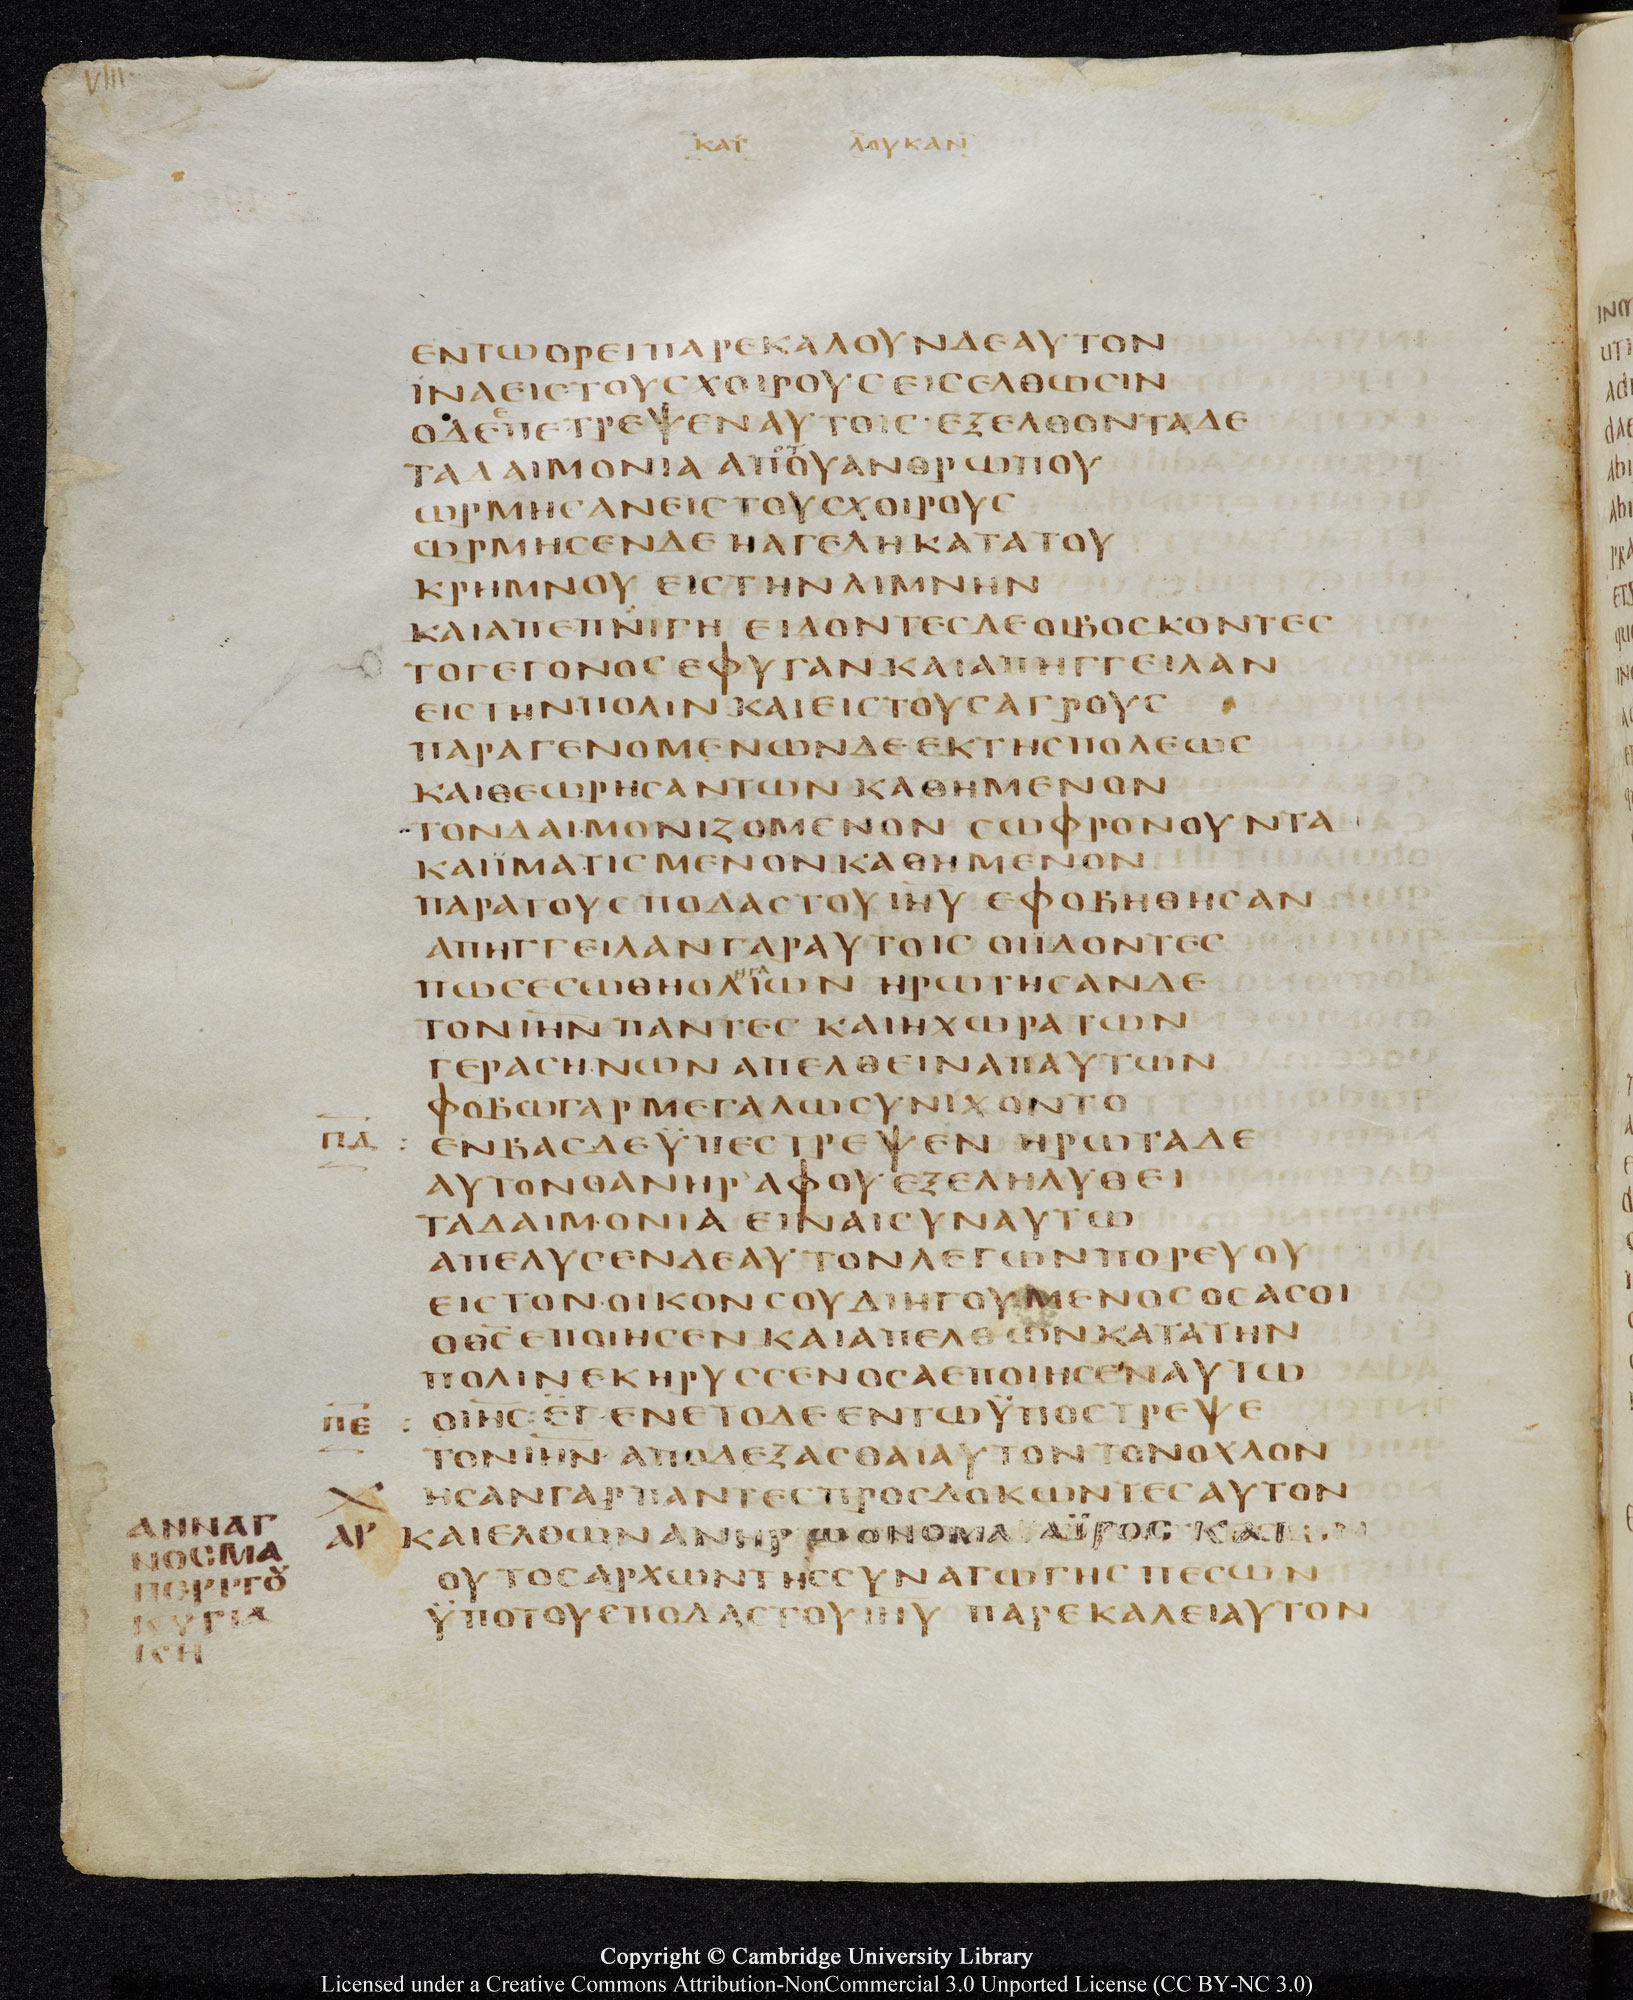 VIII
ΚΑΤ ΛΟΥΚΑΝ
ΕΝΤωΟΡΕΙΠΑΡΕΚΑΛΟΥΝΔΕΑΥΤΟΝ
ΙΝΑΕΙϹΤΟΥϹΧΟΙΡΟΥϹΕΙϹΕΛΘωϹΙΝ
ΟΔΕΕΠΕΤΡΕΨΕΝΑΥΤΟΙϹ·ΕΞΕΛΘΟΝΤΑΔΕ
ΤΑΔΑΙΜΟΝΙΑ ΑΠΟΤΟΥΑΝΘΡωΠΟΥ
ωΡΜΗϹΑΝΕΙϹΤΟΥϹΧΟΙΡΟΥϹ
ωΡΜΗϹΕΝΔΕ ΗΑΓΕΛΗΚΑΤΑΤΟΥ
ΚΡΗΜΝΟΥ ΕΙϹΤΗΝΛΙΜΝΗΝ
ΚΑΙΑΠΕΠΝΙΓΗ ΕΙΔΟΝΤΕϹΔΕΟΙΒΟϹΚΟΝΤΕϹ
ΤΟΓΕΓΟΝΟϹΕΦΥΓΑΝΚΑΙΑΠΗΓΓΕΙΛΑΝ
ΕΙϹΤΗΝΠΟΛΙΝΚΑΙΕΙϹΤΟΥϹΑΓΡΟΥϹ
ΠΑΡΑΓΕΝΟΜΕΝωΝΔΕΕΚΤΗϹΠΟΛΕωϹ
ΚΑΙΘΕωΡΗϹΑΝΤωΝΚΑΘΗΜΕΝΟΝ
ΤΟΝΔΑΙΜΟΝΙΖΟΜΕΝΟΝ ϹωΦΡΟΝΟΥΝΤΑ
ΚΑΙΪΜΑΤΙϹΜΕΝΟΝΚΑΘΗΜΕΝΟΝ
ΠΑΡΑΤΟΥϹΠΟΔΑϹΤΟΥΙΗΥ ΕΦΟΒΗΘΗϹΑΝ
ΑΠΗΓΓΕΙΛΑΝΓΑΡΑΥΤΟΙϹ ΟΙΪΔΟΝΤΕϹ
ΠωϹΕϹωΘΗΟΛΙωΝ ΗΡωΤΗϹΑΝΔΕ
ΤΟΝΙΗΝ ΠΑΝΤΕϹ ΚΑΙΗΧωΡΑΤωΝ
ΓΕΡΑϹΗΝωΝ ΑΠΕΛΘΕΙΝΑΠΑΥΤωΝ
ΦΟΒωΓΑΡΜΕΓΑΛωϹΥΝΙΧΟΝΤΟ
ΠΔ : ΕΝΒΑϹΔΕΫΠΕϹΤΡΕΨΕΝ ΗΡωΤΑΔΕ
ΑΥΤΟΝΟΑΝΗΡ ΑΦΟΥΕΞΕΛΗΛΥΘΕΙ
ΤΑΔΑΙΜΟΝΙΑ ΕΙΝΑΙϹΥΝΑΥΤω
ΑΠΕΛΥϹΕΝΔΕΑΥΤΟΝΛΕΓωΝΠΟΡΕΥΟΥ
ΕΙϹΤΟΝΟΙΚΟΝϹΟΥΔΙΗΓΟΥΜΕΝΟϹΟϹΑϹΟΙ
ΟΘϹΕΠΟΙΗϹΕΝΚΑΙΑΠΕΛΘωΝΚΑΤΑΤΗΝ
ΠΟΛΙΝΕΚΗΡΥϹϹΕΝΟϹΑΕΠΟΙΗϹΕΝΑΥΤω
ΠΕ : ΟΙΗϹ:ΕΓΕΝΕΤΟΔΕΕΝΤωΫΠΟϹΤΡΕΨΕ
ΤΟΝΙΗΝ ΑΠΟΔΕΞΑϹΘΑΙΑΥΤΟΝΤΟΝΟΧΛΟΝ
ΗϹΑΝΓΑΡΠΑΝΤΕϹΠΡΟϹΔΟΚωΝΤΕϹΑΥΤΟΝ
ΑΡ ΚΑΙΕΛΘωΝΑΝΗΡ ωΟΝΟΜΑ
ΟΥΤΟϹΑΡΧωΝΤΗϹϹΥΝΑΓωΓΗϹΠΕϹωΝ
ΫΠΟΤΟΥϹΠΟΔΑϹΤΟΥΙΗΥ ΠΑΡΕΚΑΛΕΙΑΥΤΟΝ
ΑΝΝΑΓ
ΝΟϹΜΑ
Copyright © Cambridge University Library
Licensed under a Creative Commons Attribution-NonCommercial 3.0 Unported License (CC BY-NC 3.0)